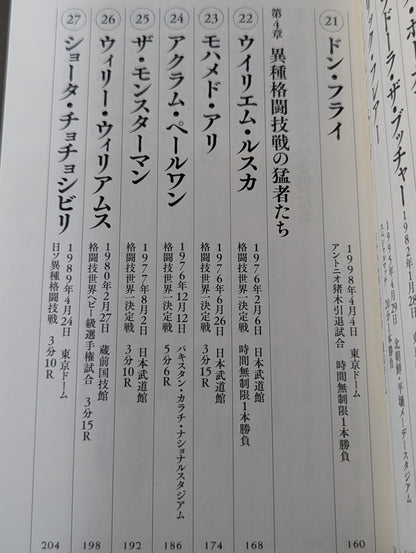 ック・フレアー
ドーラ・ザ・ブッチャー
1995年4月29日 北朝鮮・平壌メーデースタジアム
㉑ ドン・フライ
1998年4月4日 東京ドーム
アントニオ猪木引退試合 時間無制限1本勝負
160
第4章 異種格闘技戦の猛者たち
㉒ ウイリエム・ルスカ
1976年2月6日 日本武道館
格闘技世界一決定戦 時間無制限1本勝負
168
㉓ モハメド・アリ
1976年6月26日 日本武道館
格闘技世界一決定戦 3分15R
174
㉔ アクラム・ペールワン
1976年12月12日 パキスタン・カラチ・ナショナルスタジアム
格闘技世界一決定戦 5分6R
186
㉕ ザ・モンスターマン
1977年8月2日 日本武道館
格闘技世界一決定戦 3分10R
192
㉖ ウィリー・ウィリアムス
1980年2月27日 蔵前国技館
格闘技世界ヘビー級選手権試合 3分15R
198
㉗ ショータ・チョチョシビリ
1989年4月24日 東京ドーム
日ソ異種格闘技戦 3分10R
204